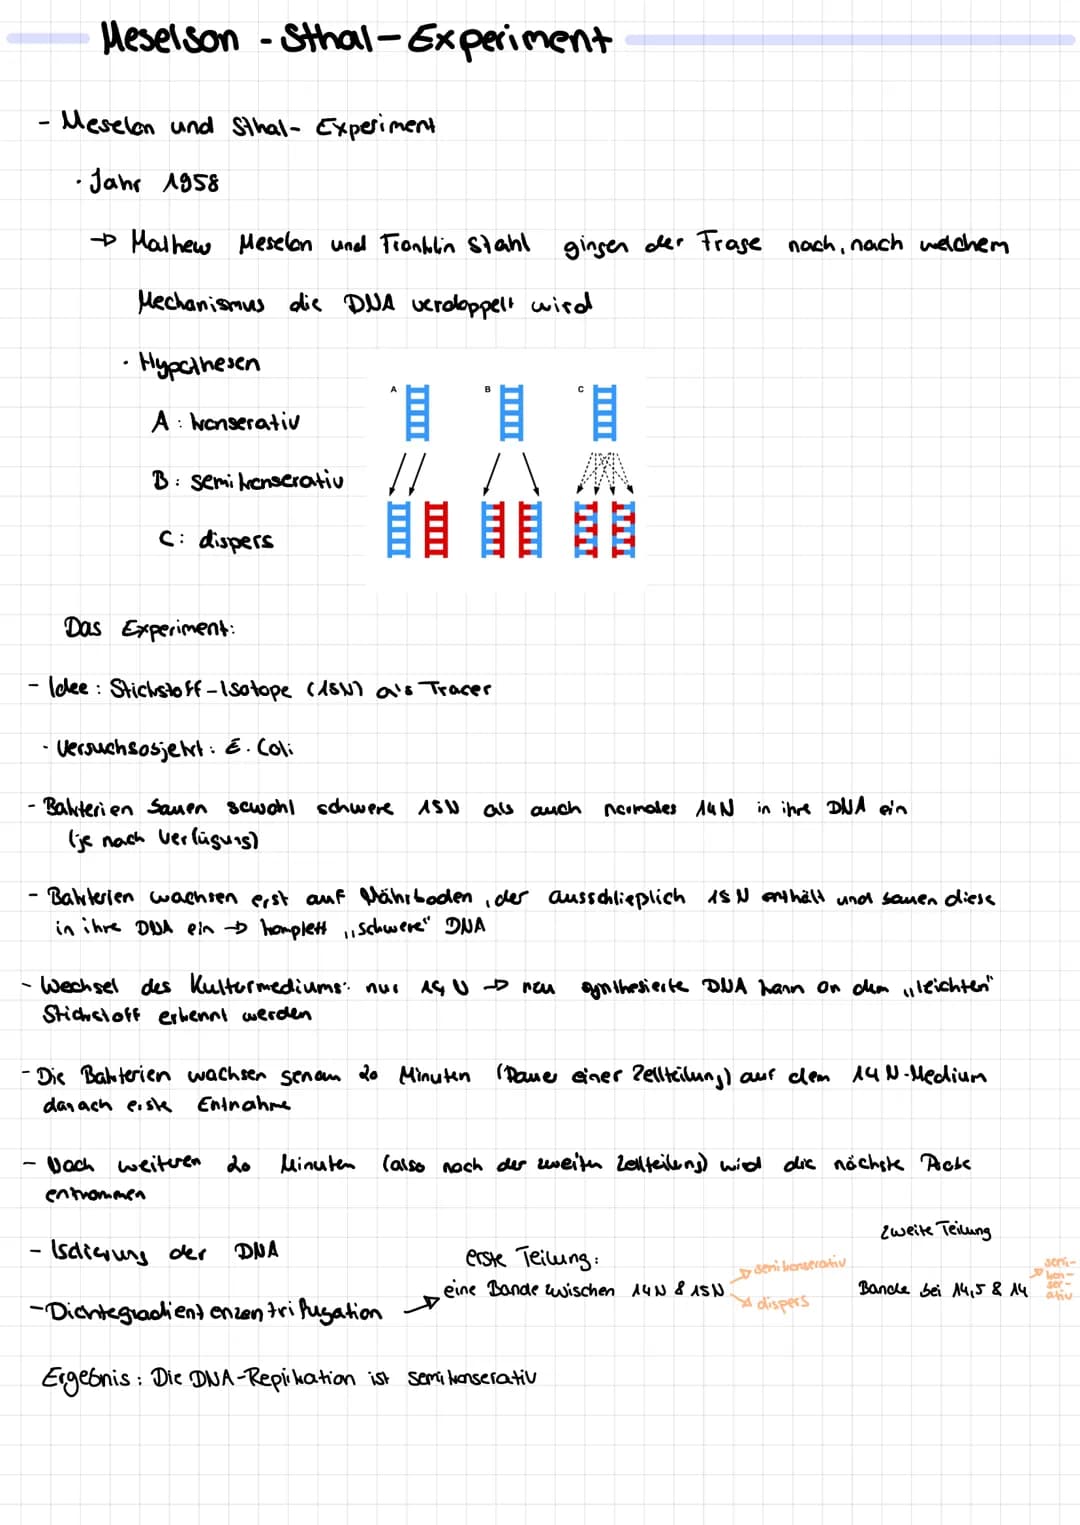 Meselson - Sthal - Experiment
- Meselon und Sthal- Experiment
· Jahr 1958
→ Mathew Meselon und Franklin Stahl gingen der Frage nach, nach welchem
Mechanismus die DNA verdoppelt wird
· Hypothesen
A B C
A: konserativ
B: semikonserativ
C: dispers
Das Experiment:
- Idee: Stickstoff-Isotope (15N) als Tracer
· Versuchsobjekt: E. Coli
- Bakterien bauen sowohl schwere 15N als auch normales 14N in ihre DNA ein
(je nach Verfügung)
- Bakterien wachsen erst auf Nährboden, der ausschließlich 15N enthält und bauen diese
in ihre DNA ein → komplett „schwere" DNA
- Wechsel des Kulturmediums: nur 14N → neu synthesierte DNA kann an dem „leichten"
Stickstoff erkennt werden
- Die Bakterien wachsen genau 20 Minuten (Dauer einer Zellteilung) auf dem 14N-Medium
danach erste Entnahme
- Nach weiteren 20 Minuten (also nach der zweiten Zellteilung) wird die nächste
entnommen
- Isolierung der DNA
erste Teilung:
zweite Teilung
- Dichtegradientenzentrifugation → eine Bande zwischen 14N & 15N → semikonserativ → dispers
Bande bei 14,5 & 14 → semi-
kon-
ser-
ativ
Ergebnis: Die DNA-Replikation ist semikonserativ